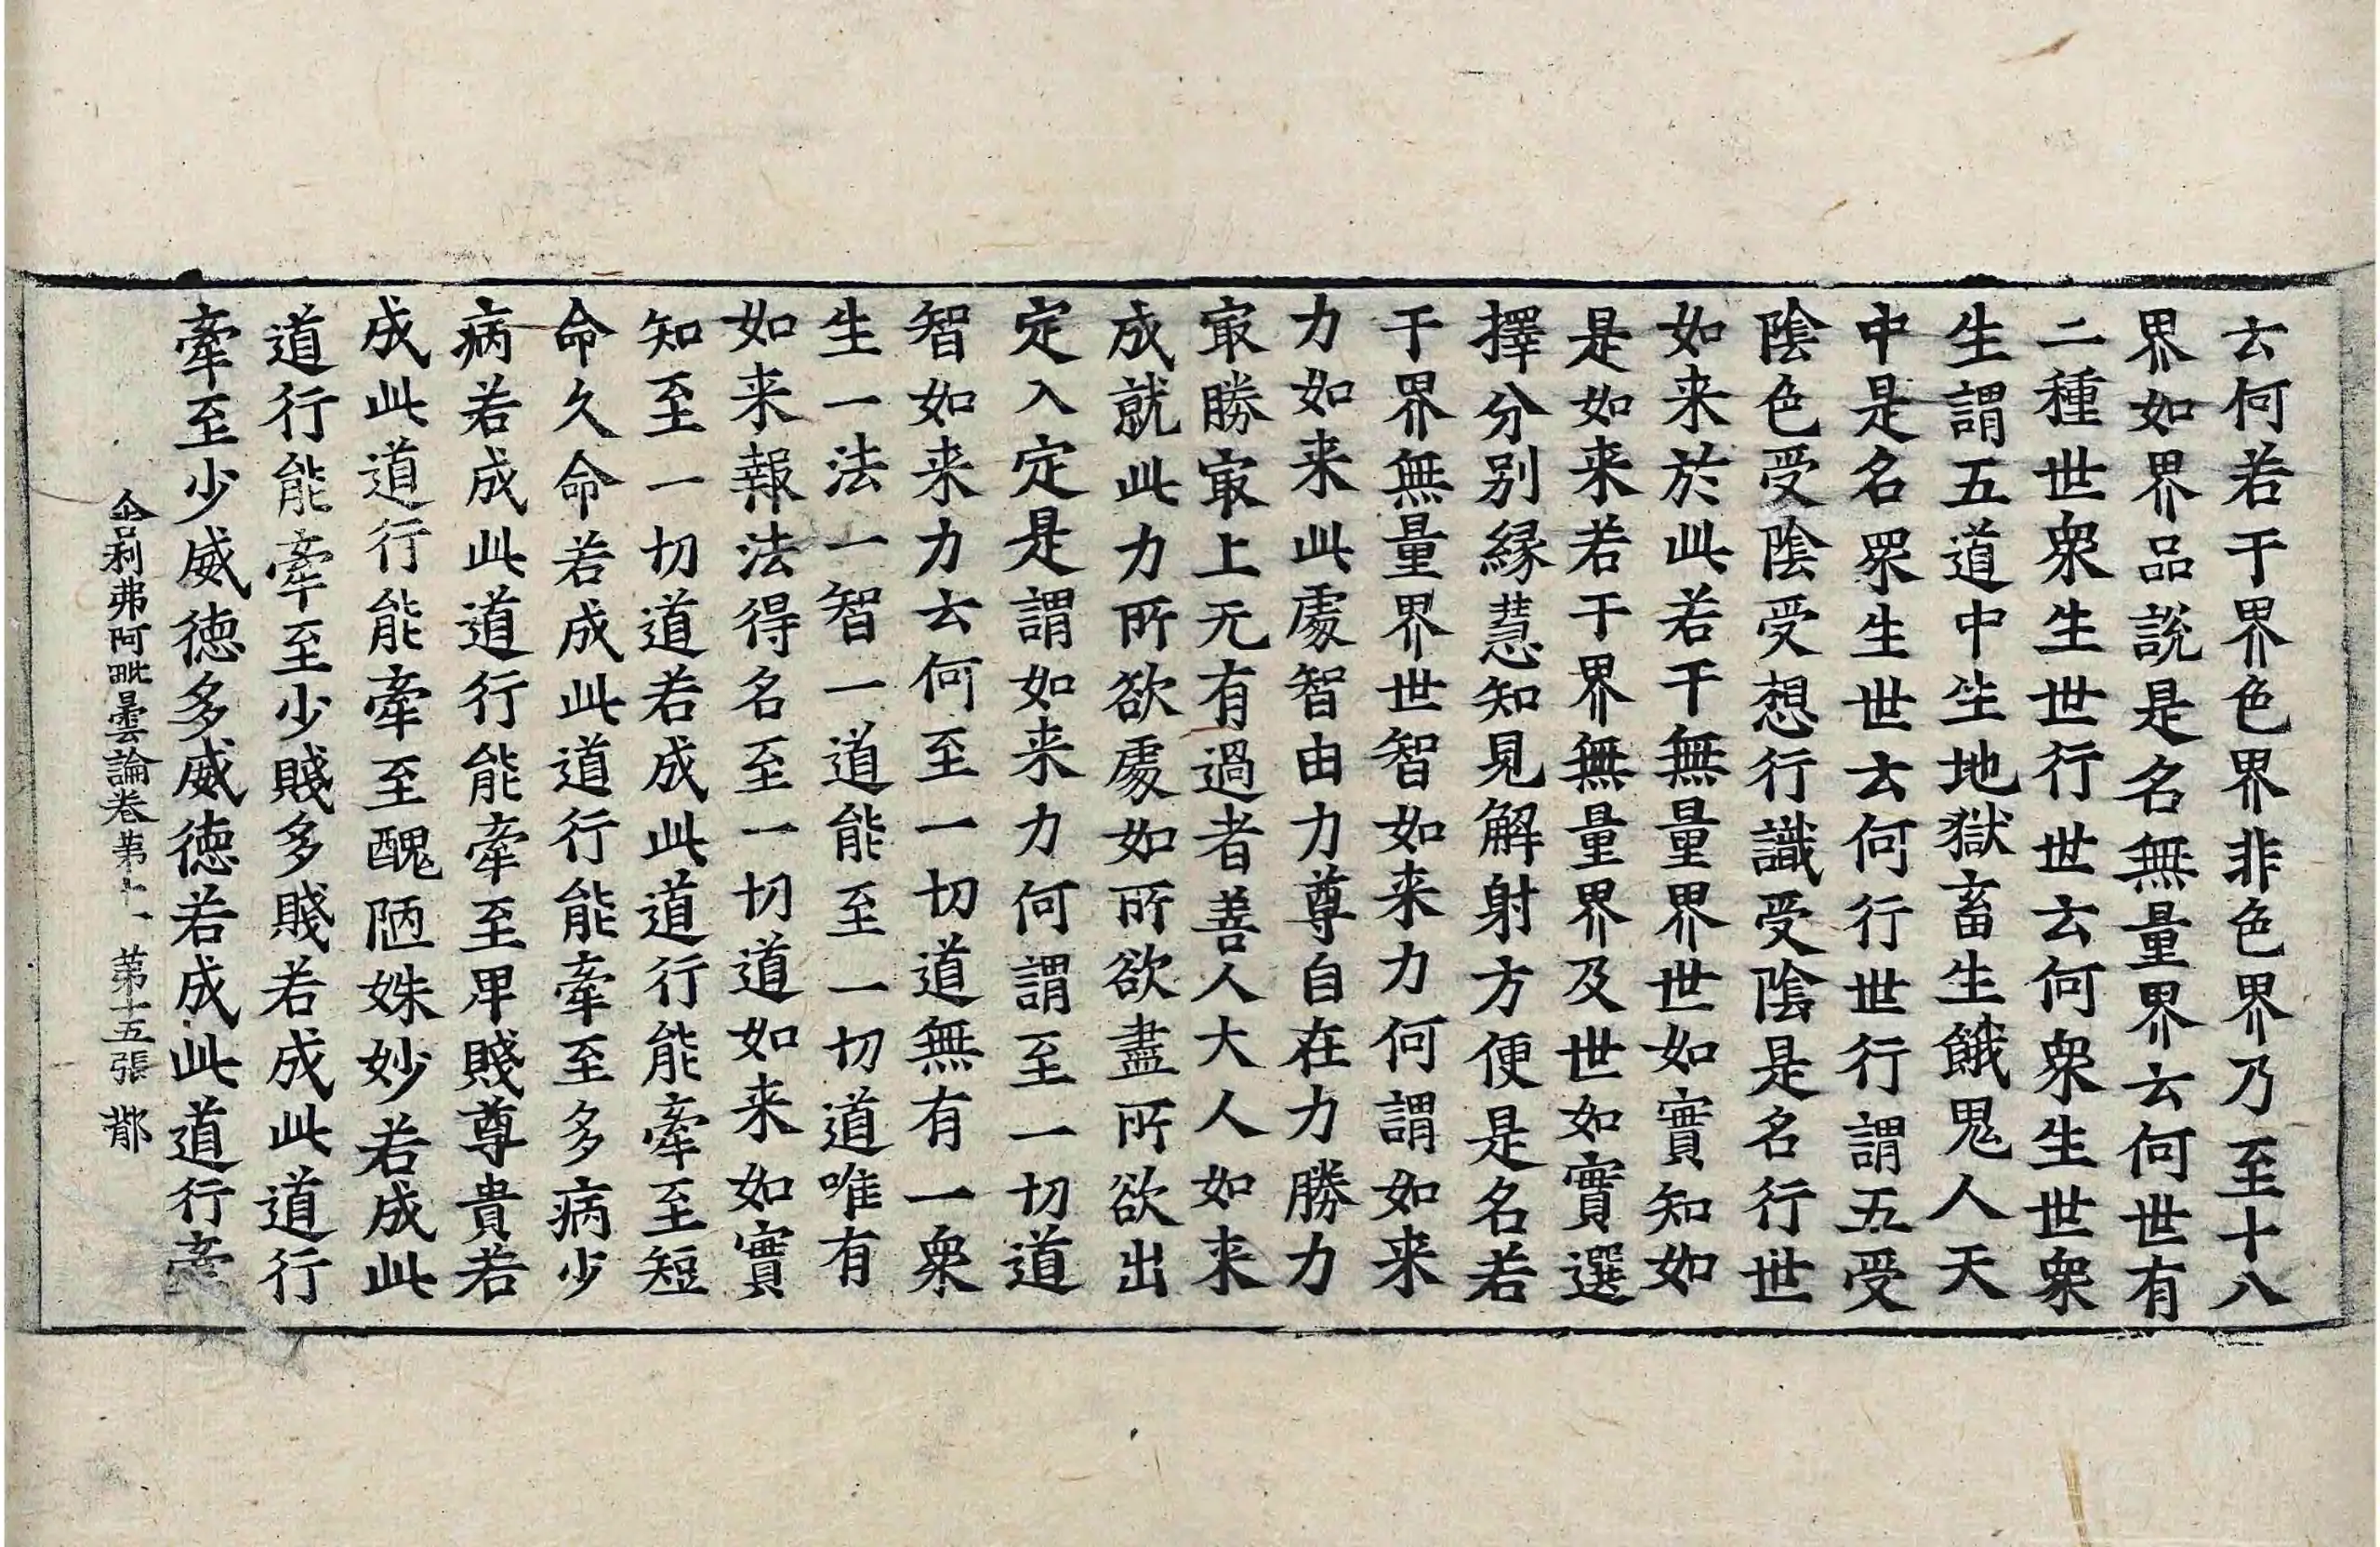 云何若干界色界非色界乃至十八
界如界品說是名無量界云何世有
二種世衆生世行世云何衆生世衆
生謂五道中生地獄畜生餓鬼人天
中是名眾生世云何行世行謂五受
陰色受陰受想行識受陰是名行世
如来於此若干無量界世如實知如
是如来若干界無量界及世如實選
擇分別緣慧知見解射方便是名若
干界無量界世智如来力何謂如来
力如来此處智由力尊自在力勝力
冣勝冣上无有過者善人大人如来
成就此力所欲處如所欲盡所欲出
定入定是謂如来力何謂至一切道
智如来力云何至一切道無有一衆
生一法一智一道能至一切道唯有
如来報法得名至一切道如来如實
知至一切道若成此道行能牽至短
命久命若成此道行能牽至多病少
病若成此道行能牽至卑賤尊貴若
成此道行能牽至醜陋姝妙若成此
道行能牽至少賤多賤若成此道行
牽至少威德多威德若成此道行牽
舍利弗阿毗曇論卷第十一 第十五張 都